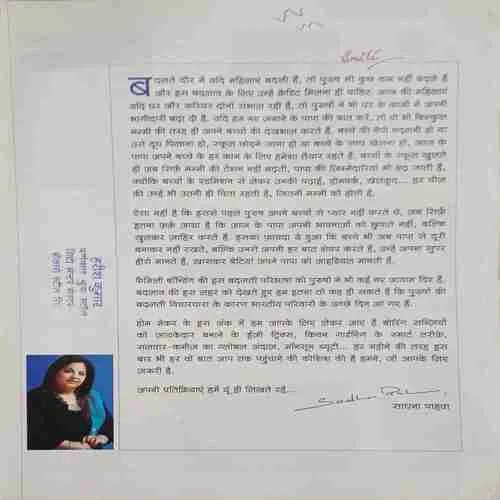 बदलते दौर में यदि महिलाएं बदली हैं, तो पुरुष भी कुछ कम नहीं बदले हैं
और इस बदलाव के लिए उन्हें क्रेडिट मिलना ही चाहिए. आज की महिलाएं
यदि घर और करियर दोनों संभाल रही हैं, तो पुरुषों ने भी घर के कामों में अपनी
भागीदारी बढ़ा दी है. यदि हम नए ज़माने के पापा की बात करें, तो वो भी बिल्कुल
मम्मी की तरह ही अपने बच्चों की देखभाल करते हैं. बच्चे की नैपी बदलनी हो या
उसे दूध पिलाना हो, स्कूल छोड़ने जाना हो या बच्चों के साथ खेलना हो, आज के
पापा अपने बच्चे के हर काम के लिए हमेशा तैयार रहते हैं. बच्चों के स्कूल खुलते
ही अब सिर्फ़ मम्मी की टेंशन नहीं बढ़ती, पापा की ज़िम्मेदारियां भी बढ़ जाती हैं,
क्योंकि बच्चों के एडमिशन से लेकर उनकी पढ़ाई, होमवर्क, खेलकूद... हर चीज़
की उन्हें भी उतनी ही चिंता रहती है, जितनी मम्मी को होती है.
ऐसा नहीं है कि इससे पहले पुरुष अपने बच्चों से प्यार नहीं करते थे, अब सिर्फ़
इतना फ़र्क़ आया है कि आज के पापा अपनी भावनाओं को छुपाते नहीं, बल्कि
खुलकर ज़ाहिर करते हैं. इसका फ़ायदा ये हुआ कि बच्चे भी अब पापा से दूरी
बनाकर नहीं रखते, बल्कि उनसे अपनी हर बात शेयर करते हैं, उन्हें अपना सुपर
हीरो मानते हैं, ख़ासकर बेटियां अपने पापा को आइडियल मानती हैं.
फैमिली बॉन्डिंग की इस बदलती परिभाषा को पुरुषों ने भी कई नए आयाम दिए हैं.
बदलाव की इस लहर को देखते हुए हम इतना तो कह ही सकते हैं कि पुरुषों की
बदलती विचारधारा के कारण भारतीय परिवारों के अच्छे दिन आ गए हैं.
होम मेकर के इस अंक में हम आपके लिए लेकर आए हैं बोरिंग सब्ज़ियों
को ज़ायकेदार बनाने के ईज़ी ट्रिक्स, किचन गार्डनिंग के स्मार्ट तरीक़े,
सलवार-कमीज़ का ग्लोबल अंदाज़, मॉनसून ब्यूटी... हर महीने की तरह इस
बार भी हर वो बात आप तक पहुंचाने की कोशिश की है हमने, जो आपके लिए
ज़रूरी है.
अपनी प्रतिक्रियाएं हमें यूं ही लिखते रहें...
साधना पाहवा
हरीश कुमार